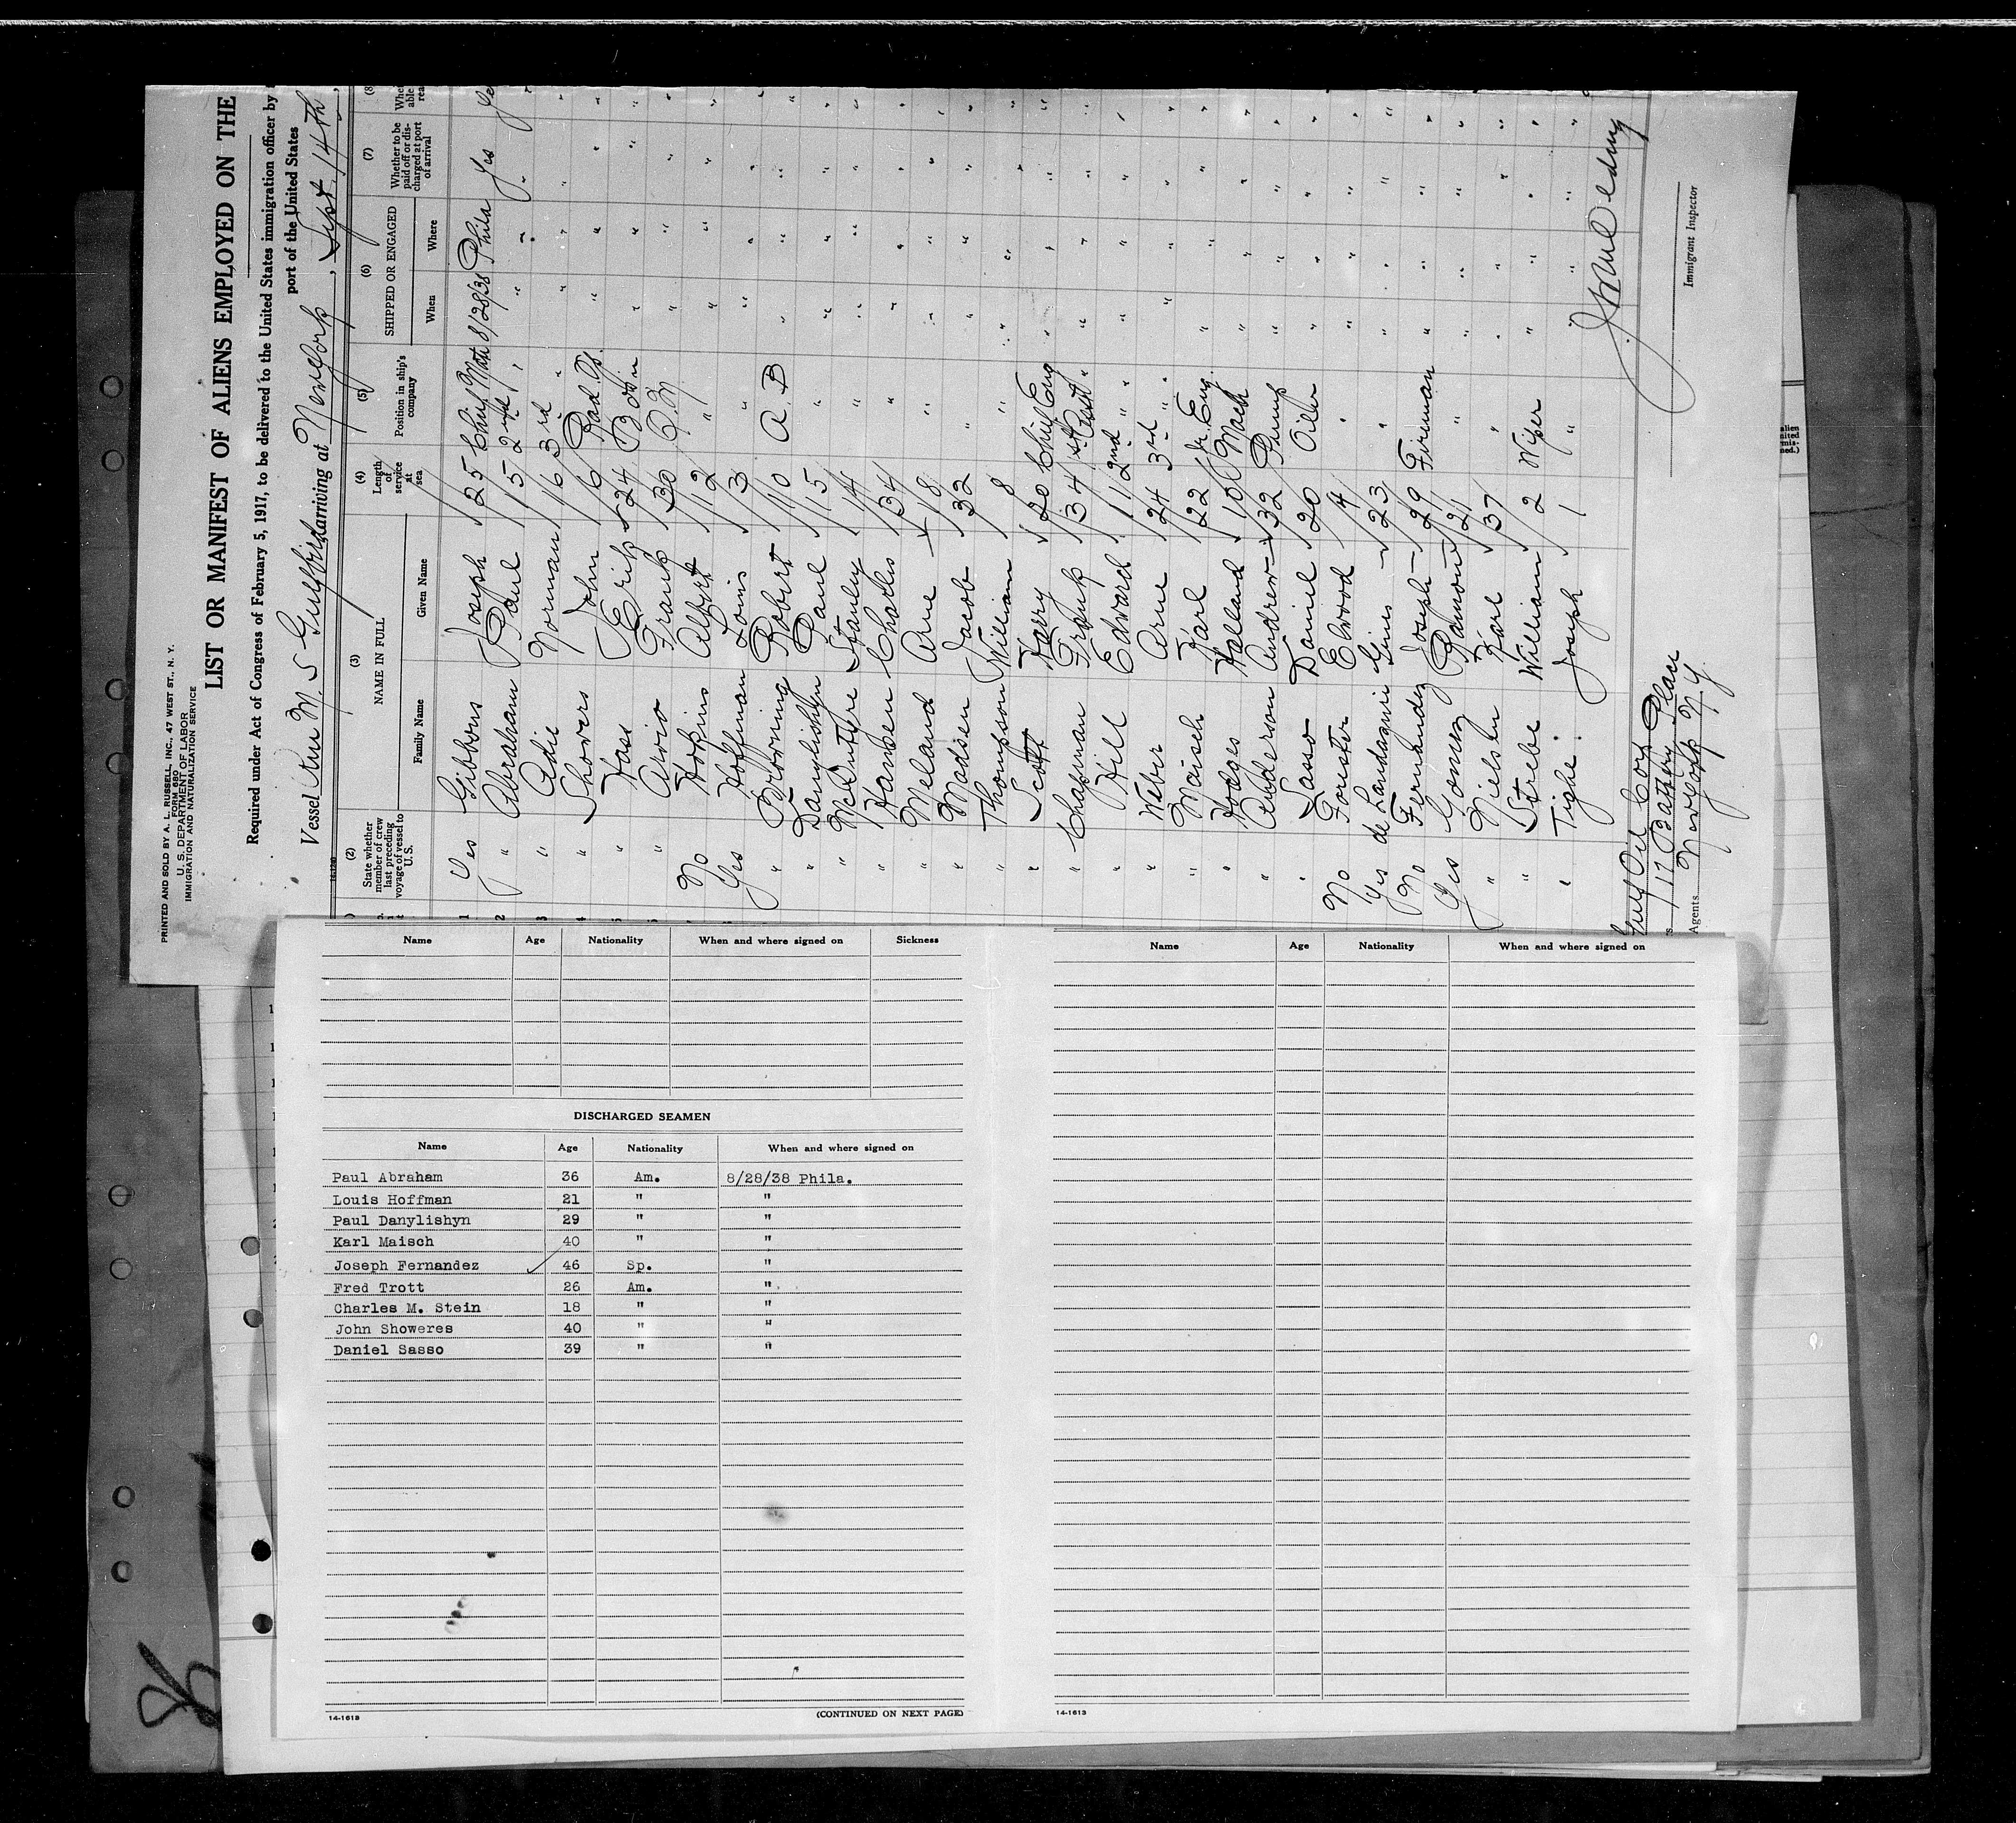 PRINTED AND SOLD BY A. L. RUSSELL, INC., 47 WEST ST., N. Y.
FORM 680
U. S. DEPARTMENT OF LABOR
IMMIGRATION AND NATURALIZATION SERVICE
LIST OR MANIFEST OF ALIENS EMPLOYED ON THE
Required under Act of Congress of February 5, 1917, to be delivered to the United States immigration officer by
port of the United States
Vessel M. S arriving at New York, Sept. 14th,
(2) (3) (4) (5) (6) (7) (8
State whether member of crew last preceding voyage of vessel to U.S. NAME IN FULL Length of service at sea Position in ship's company SHIPPED OR ENGAGED Whether to be paid off or discharged at port of arrival
Family Name Given Name When Where
1 Yes Gibbons Joseph 25 Chief Mate 8/28/38 Phila Yes Ye
2 " Abraham Paul 15 2nd " " " "
3 " Adie Norman 16 3rd " " " " "
4 " Showers John 16 Rad. Op. " " " "
5 " Vass Erik 24 Bosin " " " "
Arvio Frank 30 Q.M. " " " "
No Hopkins Albert 12 " " " " "
Yes Hoffman Louis 3 " " " " "
" Browning Robert 10 A. B " " " "
" Danylishyn Paul 15 " " " " "
" McIntyre Stanley 14 " " " " "
" Hansen Charles 34 " " " " "
" Meland Arne 8 " " " " "
" Madsen Jacob 32 " " " " "
" Thompson William 8 " " " " "
" Scott Harry 20 Chief Eng " " " "
Chapman Frank 34 1st Asst " " " " "
" Hill Edward 11 2nd " " " " " "
" Weber Arne 24 3rd " " " " " "
" Maisch Karl 22 Jr. Eng. " " " "
" Hodges Holland 10 Mach " " " "
" Anderson Andrew 32 Pump " " " "
" Sasso Daniel 20 Oiler " " " "
No Forester Elwood 4 " " " " "
Yes de Landami Gines 23 " " " " "
No Fernandez Joseph 29 Fireman " " " "
Yes Gomez Ramon 21 " " " " "
" Nielsen Karl 37 " " " " "
" Strebe William 2 Wiper " " " "
" Tighe Joseph 1 " " " " "
Gulf Oil Corp
17 Battery Place
Agents New York N.Y.
Immigrant Inspector
Name Age Nationality When and where signed on Sickness
DISCHARGED SEAMEN
Name Age Nationality When and where signed on
Paul Abraham 36 Am. 8/28/38 Phila.
Louis Hoffman 21 " "
Paul Danylishyn 29 " "
Karl Maisch 40 " "
Joseph Fernandez 46 Sp. "
Fred Trott 26 Am. "
Charles M. Stein 18 " "
John Showeres 40 " "
Daniel Sasso 39 " "
14-1613 (CONTINUED ON NEXT PAGE)
Name Age Nationality When and where signed on
14-1613